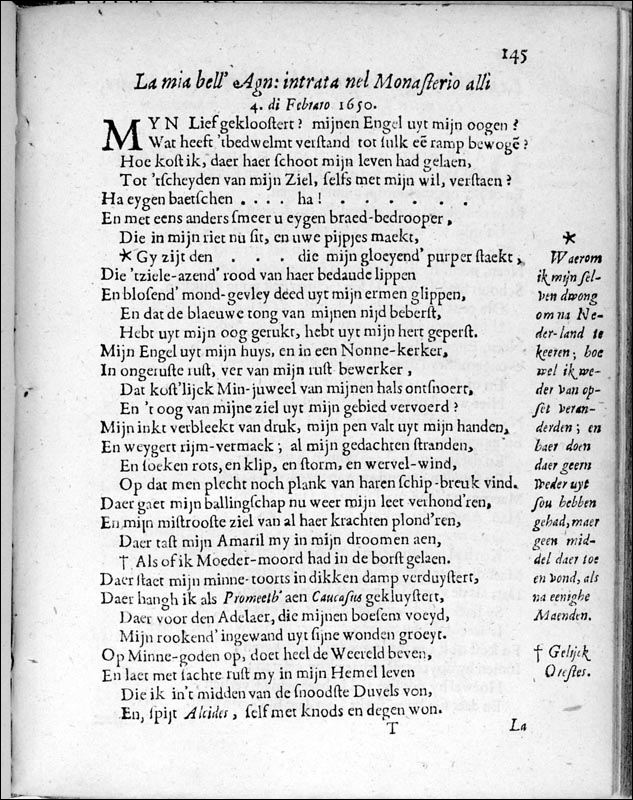 145
La mia bell' Agn: intrata nel Monaſterio alli
4. di Febraro 1650.
MYN Lief geklooſtert? mijnen Engel uyt mijn oogen?
Wat heeft 'tbedwelmt verſtand tot ſulk eẽ ramp bewogẽ?
Hoe koſt ik, daer haer ſchoot mijn leven had gelaen,
Tot 'tſcheyden van mijn Ziel, ſelfs met mijn wil, verſtaen?
Ha eygen baetſchen . . . . ha! . . . . . .
En met eens anders ſmeer u eygen braed-bedrooper,
Die in mijn riet nu ſit, en uwe pijpjes maekt,
* Gy zijt den . . . die mijn gloeyend' purper ſtaekt,
Die 'tziele-azend' rood van haer bedaude lippen
En bloſend' mond-gevley deed uyt mijn ermen glippen,
En dat de blaeuwe tong van mijnen nijd beberſt,
Hebt uyt mijn oog gerukt, hebt uyt mijn hert geperſt.
Mijn Engel uyt mijn huys, en in een Nonne-kerker,
In ongeruſte ruſt, ver van mijn ruſt bewerker,
Dat koſt'lijck Min-juweel van mijnen hals ontſnoert,
En 't oog van mijne ziel uyt mijn gebied vervoerd?
Mijn inkt verbleekt van druk, mijn pen valt uyt mijn handen,
En weygert rijm-vermaek; al mijn gedachten ſtranden,
En ſoeken rots, en klip, en ſtorm, en wervel-wind,
Op dat men plecht noch plank van haren ſchip-breuk vind.
Daer gaet mijn ballingſchap nu weer mijn leet verhond'ren,
En mijn miſtrooſte ziel van al haer krachten plond'ren,
Daer taſt mijn Amaril my in mijn droomen aen,
† Als of ik Moeder-moord had in de borſt gelaen.
Daer ſtaet mijn minne-toorts in dikken damp verduyſtert,
Daer hangh ik als Promeeth' aen Caucaſus gekluyſtert,
Daer voor den Adelaer, die mijnen boeſem voeyd,
Mijn rookend' ingewand uyt ſijne wonden groeyt.
Op Minne-goden op, doet heel de Weereld beven,
En laet met ſachte ruſt my in mijn Hemel leven
Die ik in't midden van de ſnoodſte Duvels von,
En, ſpijt Alcides, ſelf met knods en degen won.
T
La
*
Waerom
ik mijn ſel-
ven dwong
om na Ne-
der-land te
keeren; hoe
wel ik we-
der van op-
ſet veran-
derden; en
haer doen
daer geern
weder uyt
ſou hebben
gehad, maer
geen mid-
del daer toe
en vond, als
na eenighe
Maenden.
† Gelijck
Oreſtes.